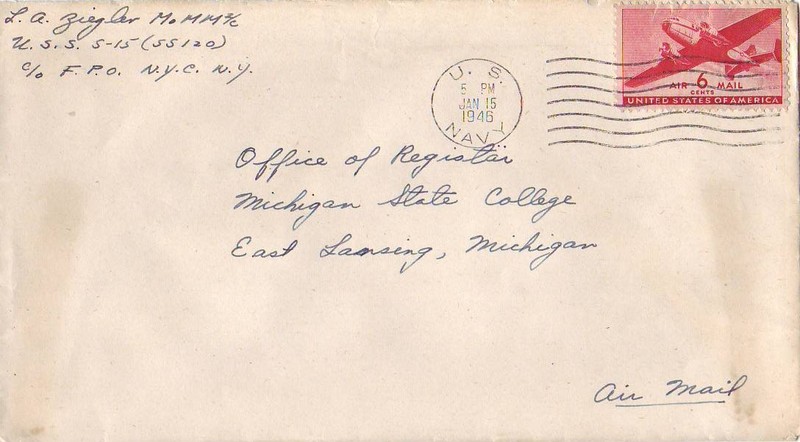 L. A. Ziegler MoMM2/c
U. S. S. S-15 (SS120)
c/o F. P. O. N.Y.C. N.Y.
U. S.
5 PM
JAN 15
1946
NAVY
AIR 6 MAIL
CENTS
UNITED STATES OF AMERICA
Office of Registar
Michigan State College
East Lansing, Michigan
Air Mail